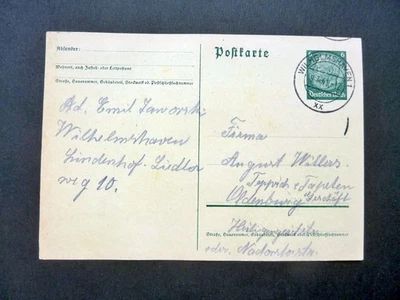 Absender:
Wohnort, auch Zustell- oder Leitpostamt
Straße, Hausnummer, Gebäudeteil, Stockwerk od. Postschließfachnummer
Postkarte
6
Deutsches Reich
WILHELMSHAVEN 1
xx
Abs. Emil Jaworski
Wilhelmshaven
Lindenhof-Siedler
weg 10.
Firma
August Willers
Teppich u Tapeten
Oldenburg Geschäft
Heiligengeiststr.
Straße, Hausnummer, Gebäudeteil, Stockwerk od. Postschließfachnummer
oder Nadorsterstr.